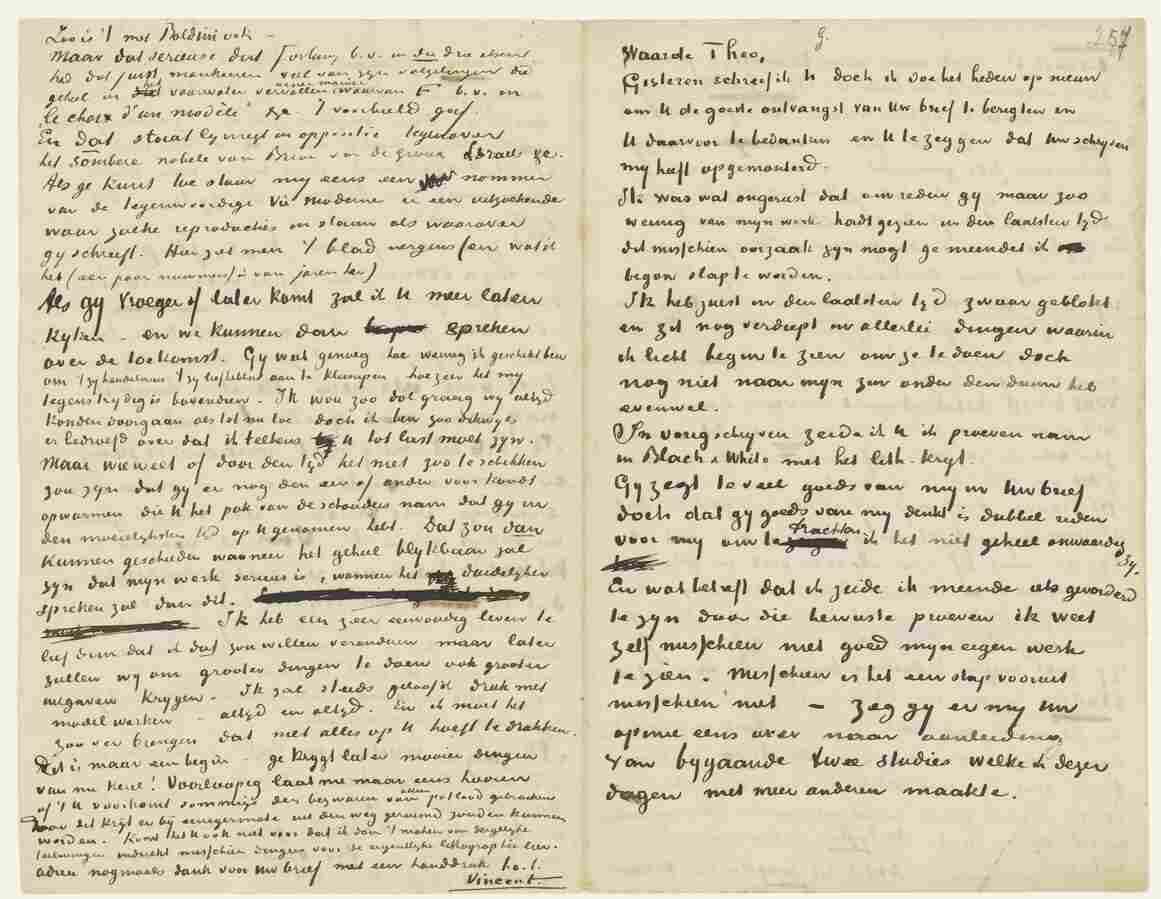 Zoo is 't met Boldini ook –
Maar dat serieuse dat Fortuny b.v. in die drie etsen
had dat juist mankeeren veel van zyn volgelingen die
geheel in het voorvaren vervallen waarvan F b.v. in
eene manier
"le choix d'un modèle" &c. 't voorbeeld gaf.
En dat staat lynregt in oppositie tegenover
het sombere nobele van Brion van de Groux Israels &c.
Als ge kunt toe stuur my eens een nommer
van de tegenwoordige Vie moderne er een uitzoekende
waar zulke reproducties in staan als waarover
gy schryft. Hier ziet men 't blad nergens (en wat ik
heb (een paar nummers) is van jaren her)
Als gy vroeger of later komt zal ik U meer laten
kyken – en we kunnen dan spreken
over de toekomst. Gy weet genoeg hoe weinig ik geschikt ben
om 't zy handelaars 't zy liefhebbers aan te klampen hoezeer het my
tegenstrydig is bovendien. Ik wou zoo dol graag wy altyd
konden doorgaan als tot nu toe doch ik ben zoo dikwyls
er bedroefd over dat ik telkens U tot last moet zyn.
Maar wie weet of door den tyd het niet zoo te schikken
zou zyn dat gy er nog den een of ander voor kondt
opwarmen die U het pak van de schouders nam dat gy in
den moeielyksten tyd op U genomen hebt. Dat zou dan
kunnen geschieden wanneer het geheel blykbaar zal
zyn dat myn werk serieus is, wanneer het duidelyker
spreken zal dan dit.
Ik heb een zeer eenvoudig leven te
lief dan dat ik dat zou willen veranderen maar later
zullen wy om grooter dingen te doen ook grooter
uitgaven krygen. Ik zal steeds geloof ik druk met
model werken – altyd en altyd. En ik moet het
zoo ver brengen dat niet alles op U hoeft te drukken.
Dit is maar een begin – ge krygt later mooier dingen
van me kerel! Voorloopig laat me maar eens hooren
of 't U voorkomt sommige der bezwaren van potlood gebruiken
alleen
door dit kryt er by eenigermate uit den weg geruimd zouden kunnen
worden. Komt het U ook niet voor dat ik door 't maken van dergelyke
teekeningen indirekt misschien dingens voor de eigentlyke lithographie leer.
adieu nogmaals dank voor Uw brief met een handdruk t. à. t.
Vincent.
g.
257
Waarde Theo,
Gisteren schreef ik U doch ik doe het heden op nieuw
om U de goede ontvangst van Uw brief te berigten en
U daarvoor te bedanken en U te zeggen dat Uw schryven
my heeft opgemonterd.
Ik was wat ongerust dat om reden gy maar zoo
weinig van myn werk hadt gezien in den laatsten tyd
dit misschien oorzaak zyn mogt ge meendet ik
begon slap te worden.
Ik heb juist in den laatsten tyd zwaar geblokt
en zit nog verdiept in allerlei dingen waarin
ik licht begin te zien om ze te doen doch
nog niet naar myn zin onder den duim heb
evenwel.
In vorig schryven zeide ik U ik proeven nam
in Black & White met het lith. kryt.
Gy zegt te veel goeds van my in Uw brief
doch dat gy goeds van my denkt is dubbel reden
trachten
voor my om te ik het niet geheel onwaardig
zy.
En wat betreft dat ik zeide ik meende iets gevorderd
te zyn door die bewuste proeven ik weet
zelf misschien niet goed myn eigen werk
te zien. Misschien is het een stap vooruit
misschien niet – zeg gy er my Uw
opinie eens over naar aanleiding
van bygaande twee studies welke ik dezer
dagen met meer anderen maakte.